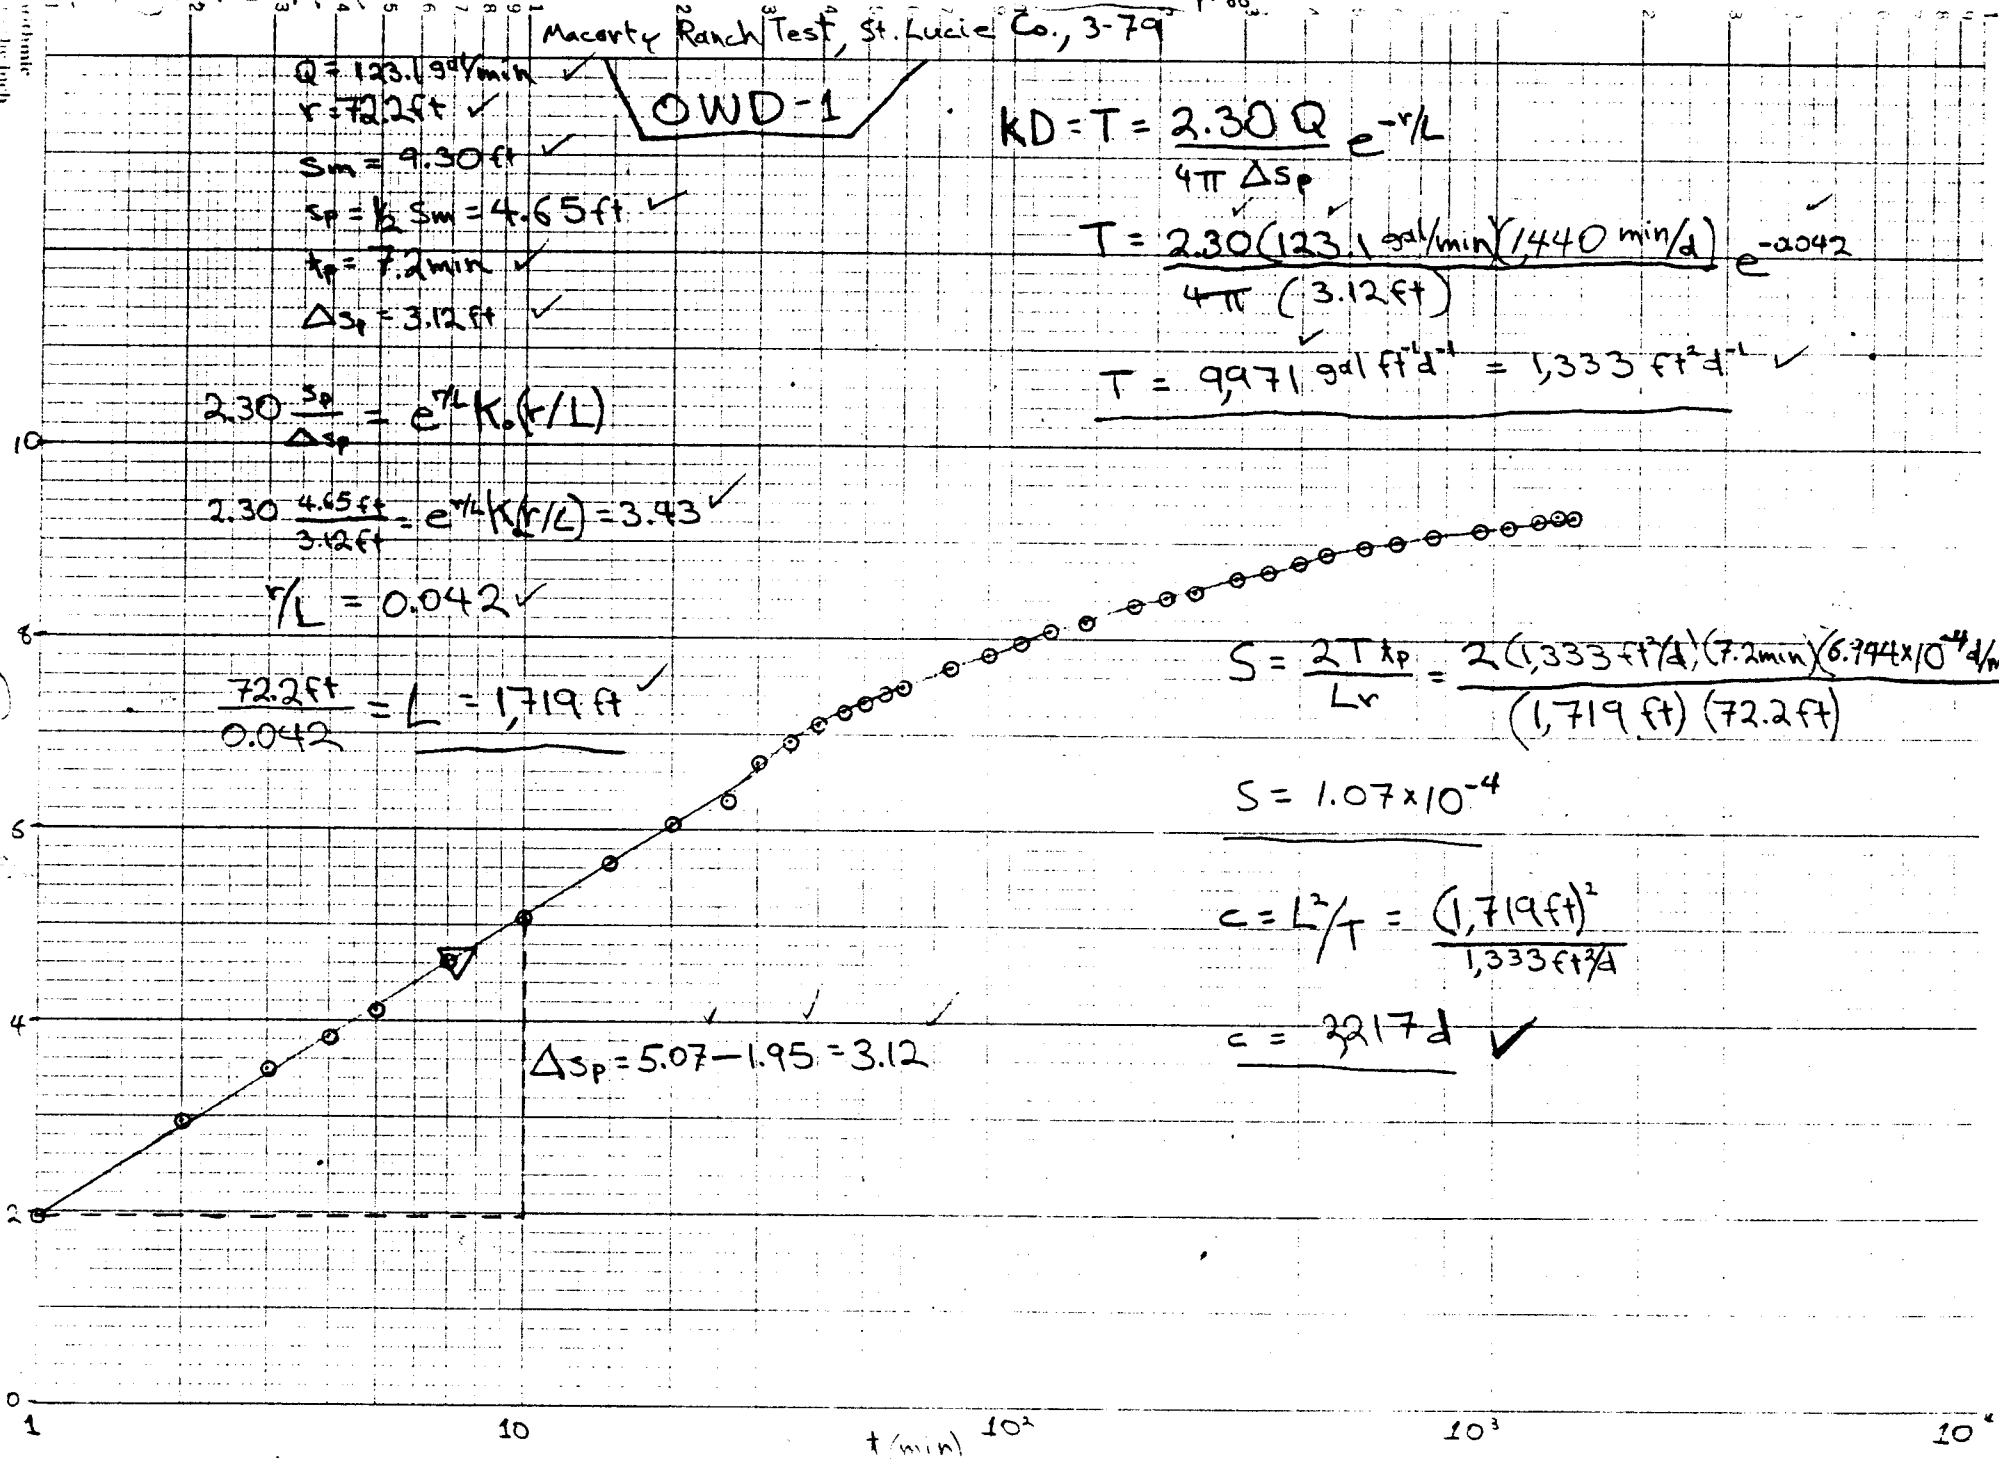 Macarty Ranch Test, St. Lucie Co., 3-79
OWD-1
Q = 123.1 gal/min ✓
r = 72.2 ft ✓
sm = 9.30 ft ✓
sp = 1/2 sm = 4.65 ft ✓
tp = 7.2 min ✓
Δsp = 3.12 ft ✓
2.30 sp/Δsp = e^r/L K₀(r/L)
2.30 4.65 ft/3.12 ft = e^r/L K₀(r/L) = 3.43 ✓
r/L = 0.042 ✓
72.2 ft/0.042 = L = 1,719 ft ✓
KD = T = 2.30 Q/4π Δsp e^-r/L
T = 2.30 (123.1 gal/min)(1,440 min/d)/4π (3.12 ft) e^-0.042
T = 9,971 gal ft⁻¹d⁻¹ = 1,333 ft²d⁻¹ ✓
S = 2T tp/Lr = 2(1,333 ft²/d)(7.2 min)(6.944×10⁻⁴ d/m/(1,719 ft)(72.2 ft)
S = 1.07×10⁻⁴
c = L²/T = (1,719 ft)²/1,333 ft²/d
c = 2,217 d ✓
Δsp = 5.07 – 1.95 = 3.12
10
8
6
4
2
0
1 10 10² 10³ 10⁴
t (min)